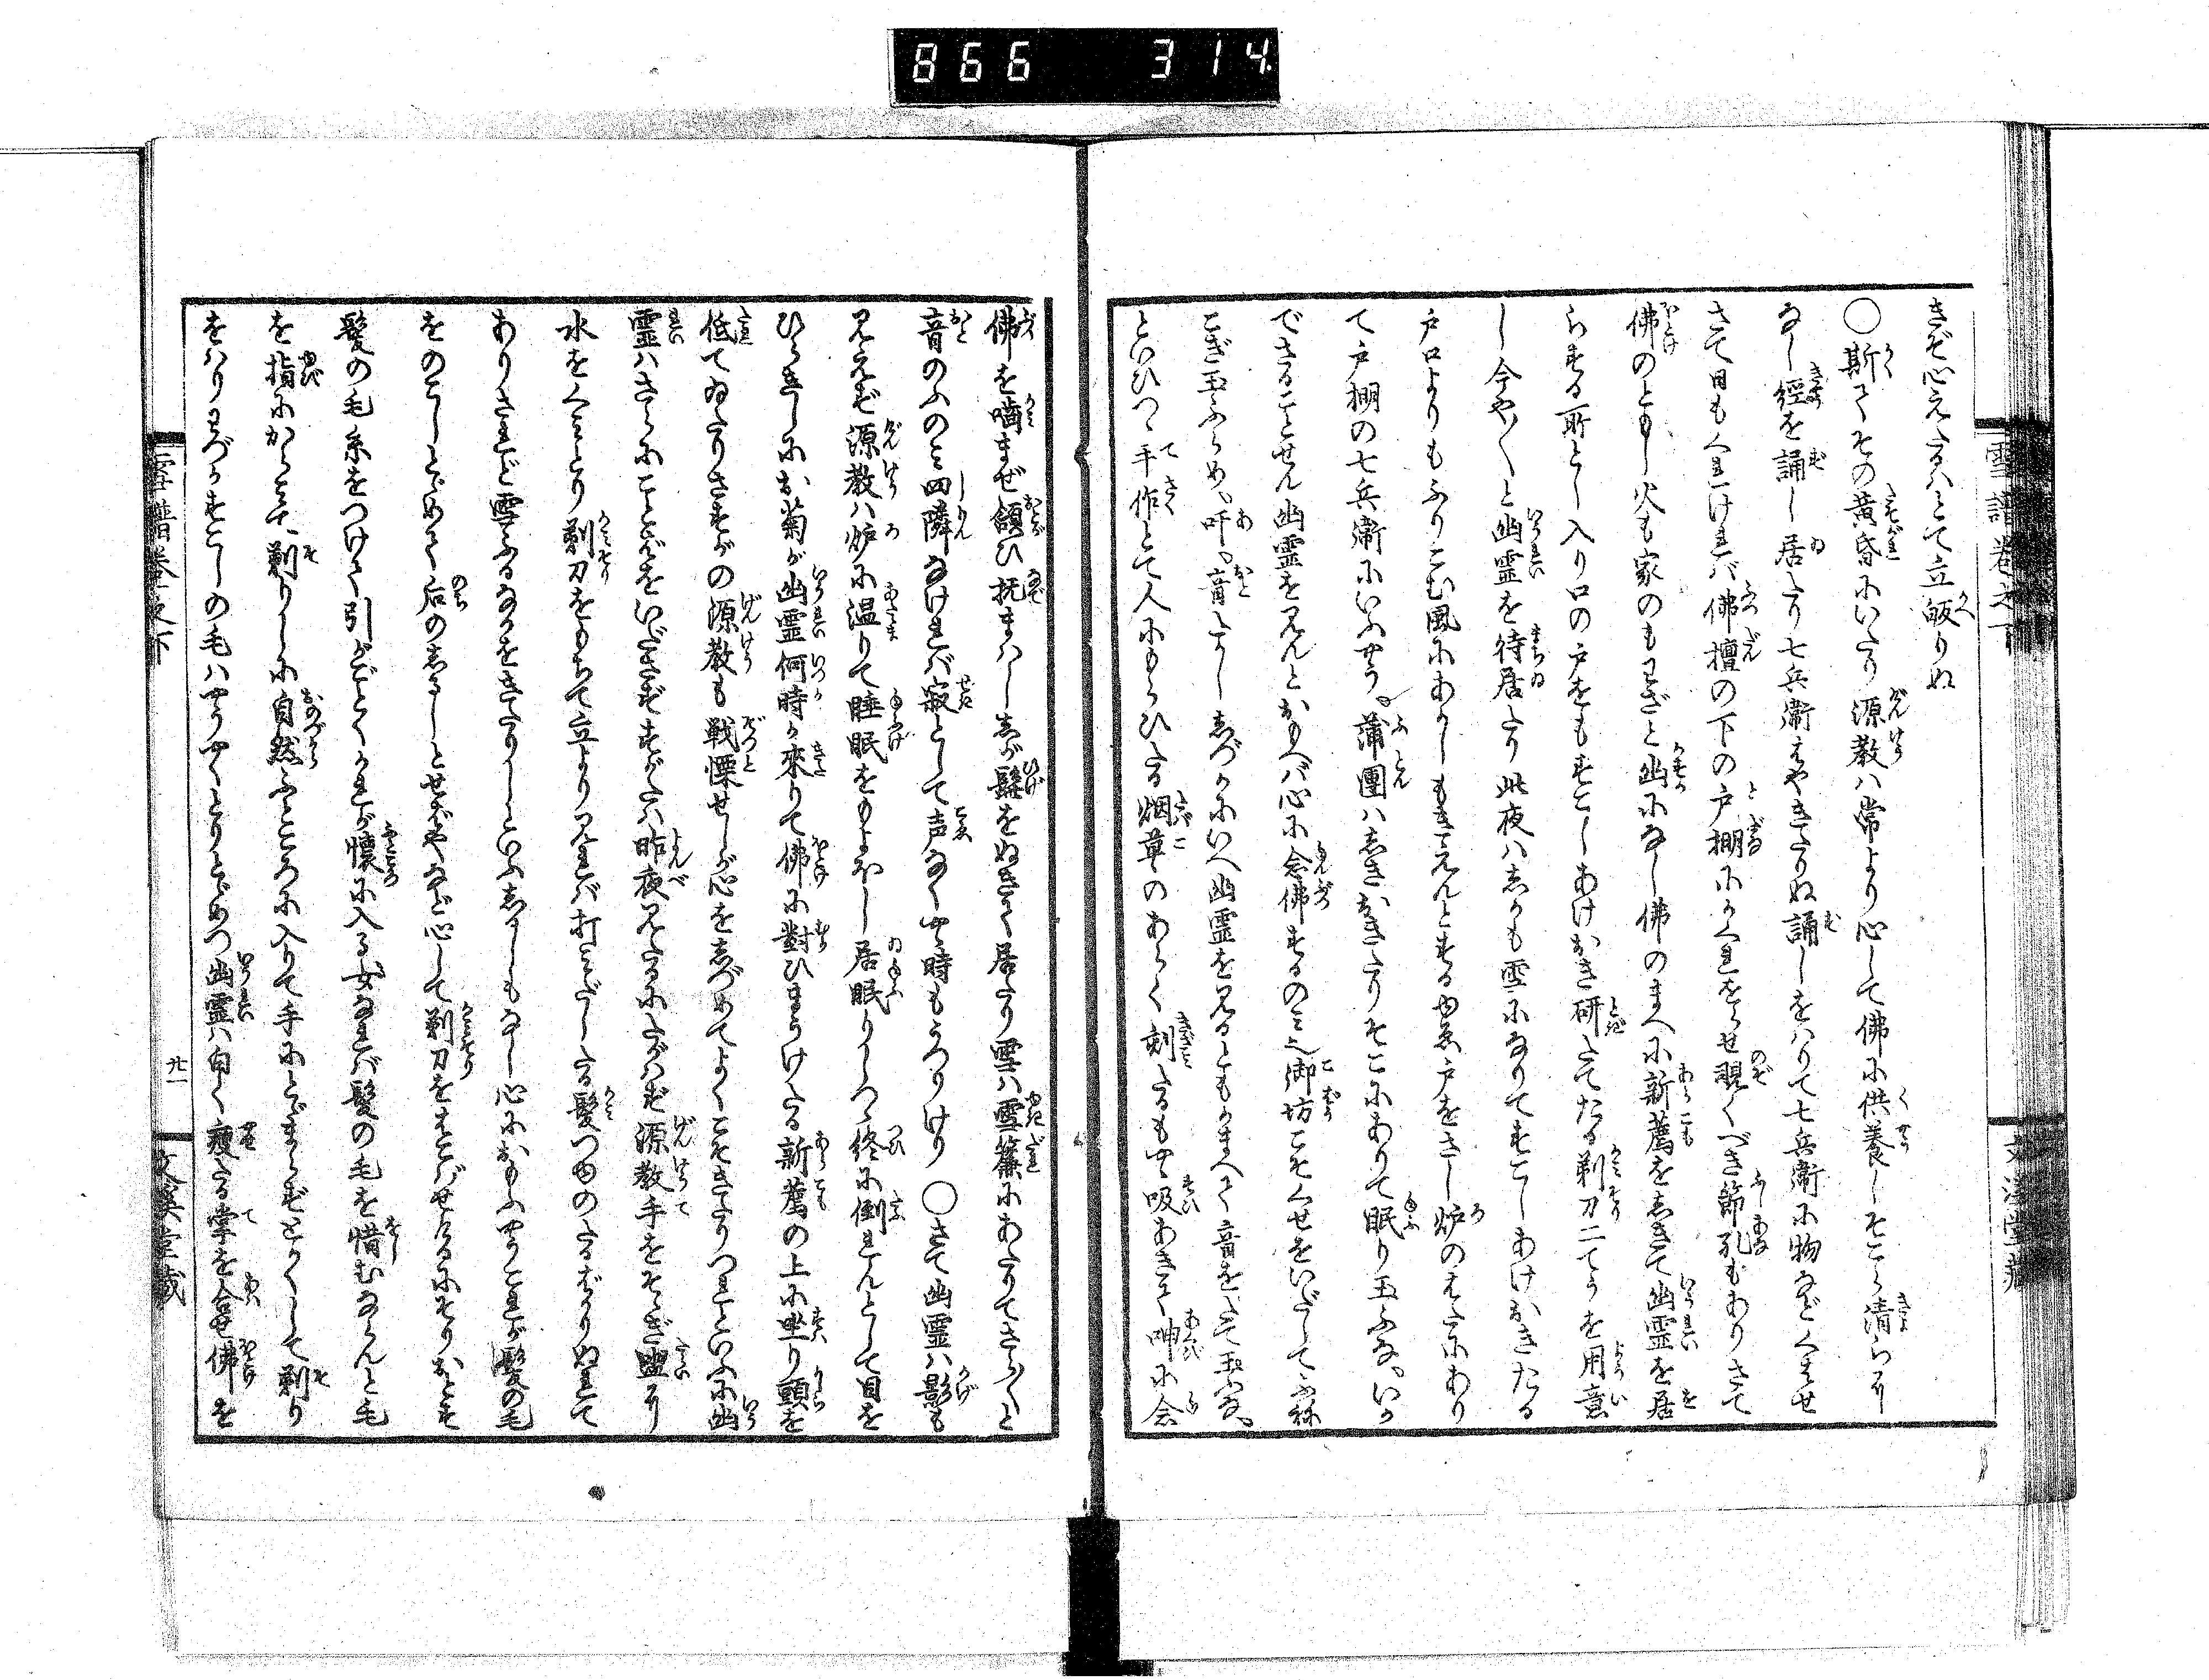 866 314
雪譜卷之下
文溪堂藏
きぞ心えたるハとて立皈りぬ
○斯てその黄昏にいたり源教ハ常より心して佛に供養しそこら清らに
なし經を誦し居たり七兵衛はやきたりぬ誦しをハりて七兵衛に物などくはせ
さて日もくれけれバ佛壇の下の戸棚にかくれをらせ覗くべき節孔もありさて
佛のともし火も家のもわざと幽になし佛のまへに新薦をしきて幽霊を居
らする所とし入り口の戸をもすこしあけおき研たてたる剃刀二てうを用意
し今や〱と幽霊を待居たり此夜ハしかも雪になりてすこしあけおきたる
戸口よりもふりこむ風にあかしもきえんとする由ゑ戸をさし炉のはたにあり
て戸棚の七兵衛にいふやう。蒲團ハしきおきたりそこにありて眠り玉ふな。いか
でさることせん幽霊を見んとおもへバ心に念佛するのミ也御坊こそくせをいだしてふ祢
こぎ玉ふらめ。吁。音たかししづかにいへ幽霊を見るともかまへて音をたて玉ふな。
といひつゝ手作とて人にもらひたる烟草のあらく刻たるもや吸あきて呻に念
佛を噛まぜ頷ひ撫まハししが髯をぬきて居たり雪ハ雪簾にあたりてさら〱と
音のふのミ四隣なけれバ寂として声なくや時もうつりけり ○さて幽霊ハ影も
見えず源教ハ炉に温りて睡眠をもよほし居眠りしつゝ終に倒れんとして目を
ひらきしにお菊が幽霊何時か來りて佛に對ひまうけたる新薦の上に坐り頭を
低てゐたりさすがの源教も戦慄せしが心をしづめてよくこそきたりつれといふに幽
霊ハさらにことばをいださずすがたハ昨夜見たるにたがハず源教手をそゝぎ盥に
水をくミとり剃刀をもちて立より見れバ打こぼしたる髪つゆのたるばかりぬれて
ありされど雪ふるなかをきたりしといふしるしもなし心におもふやうこれが髪の毛
をのこしとゞめて后のしるしとせばやなど心して剃刀をはこバせけるにそりおとす
髪の毛糸をつけて引がごとくかれが懐に入る女なれバ髪の毛を惜むならんと毛
を指にからミて剃りしに自然ふところに入りて手にとゞまらずとかくして剃り
をハりわづかすこしの毛ハやうやくとりとゞめつ幽霊ハ白く痩たる掌を合せ佛を
雪譜卷之下
廿一
文溪堂藏